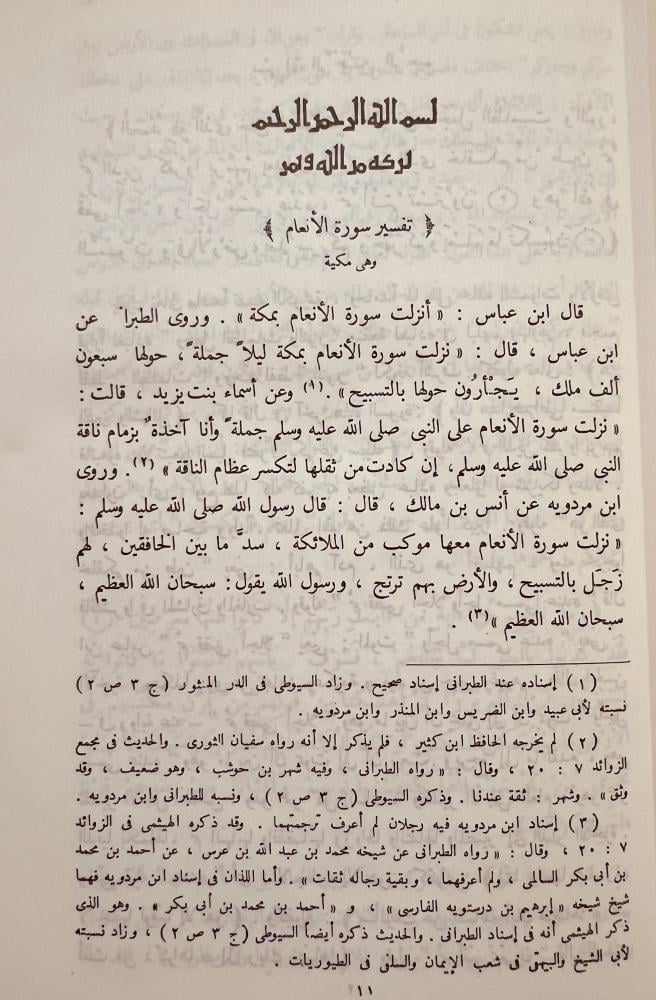 بسم الله الرحمن الرحيم
﴿ تفسير سورة الأنعام ﴾
وهى مكية
قال ابن عباس : « أنزلت سورة الأنعام بمكة » . وروى الطبرا عن
ابن عباس ، قال : « نزلت سورة الأنعام بمكة ليلاً جملةً ، حولها سبعون
ألف ملك ، يَجْأَرُون حولها بالتسبيح » . (١) وعن أسماء بنت يزيد ، قالت :
« نزلت سورة الأنعام على النبى صلى الله عليه وسلم جملةً وأنا آخذةٌ بزمام ناقة
النبى صلى الله عليه وسلم، إن كادت من ثقلها لتكسر عظام الناقة » (٢) . وروى
ابن مردويه عن أنس بن مالك ، قال : قال رسول الله صلى الله عليه وسلم :
« نزلت سورة الأنعام معها موكب من الملائكة ، سدَّ ما بين الخافقين ، لهم
زَجَل بالتسبيح ، والأرض بهم ترتج ، ورسول الله يقول : سبحان الله العظيم ،
سبحان الله العظيم » (٣) .
(١) إسناده عند الطبرانى إسناد صحيح . وزاد السيوطى فى الدر المنثور (ج ٣ ص ٢)
نسبته لأبى عبيد وابن الضريس وابن المنذر وابن مردويه .
(٢) لم يخرجه الحافظ ابن كثير ، فلم يذكر إلا أنه رواه سفيان الثورى . والحديث فى مجمع
الزوائد ٧ : ٢٠ ، وقال : « رواه الطبرانى ، وفيه شهر بن حوشب ، وهو ضعيف ، وقد
وثق » . وشهر : ثقة عندنا . وذكره السيوطى (ج ٣ ص ٢) ، ونسبه للطبرانى وابن مردويه .
(٣) إسناد ابن مردويه فيه رجلان لم أعرف ترجمتهما . وقد ذكره الهيثمى فى الزوائد
٧ : ٢٠ ، وقال : « رواه الطبرانى عن شيخه محمد بن عبد الله بن عرس ، عن أحمد بن محمد
بن أبى بكر السالمى ، ولم أعرفهما ، وبقية رجاله ثقات » . وأما اللذان فى إسناد ابن مردويه فهما
شيخ شيخه « إبرهيم بن درستويه الفارسى » ، و « أحمد بن محمد بن أبى بكر » . وهو الذى
ذكر الهيثمى أنه فى إسناد الطبرانى . والحديث ذكره أيضاً السيوطى (ج ٣ ص ٢) ، وزاد نسبته
لأبى الشيخ والبيهقى فى شعب الإيمان والسلفى فى الطيوريات .
١١